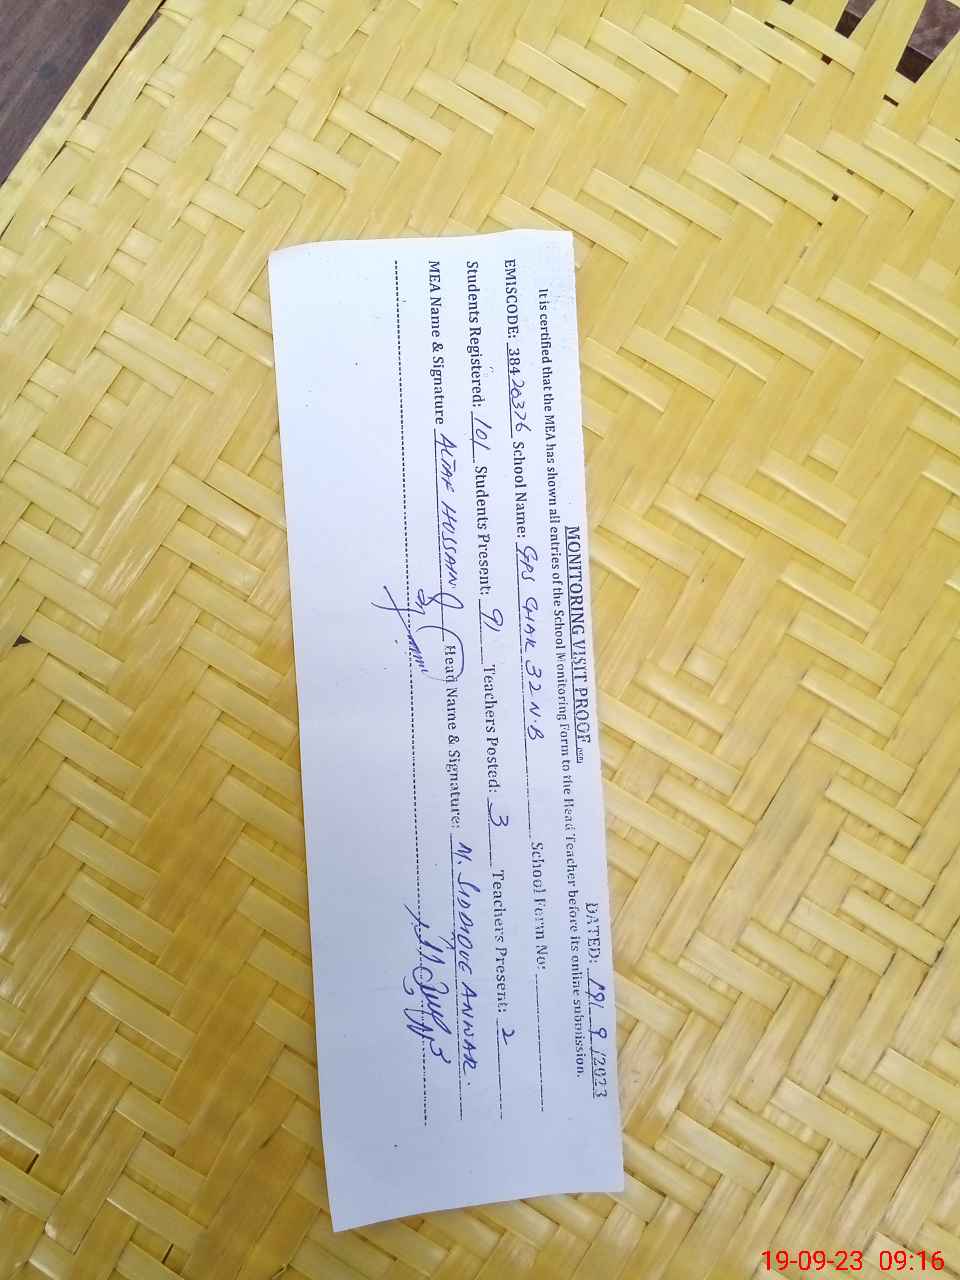 MONITORING VISIT PROOF
DATED: 19/ 9 /2023
It is certified that the MEA has shown all entries of the School Monitoring Form to the Head Teacher before its online submission.
EMISCODE: 38420376 School Name: GPS CHAK 32 N.B School Form No:
Students Registered: 101 Students Present: 91 Teachers Posted: 3 Teachers Present: 2
MEA Name & Signature ALTAF HUSSAIN Head Name & Signature: M. SIDDIQUE ANWAR.
19-09-23 09:16